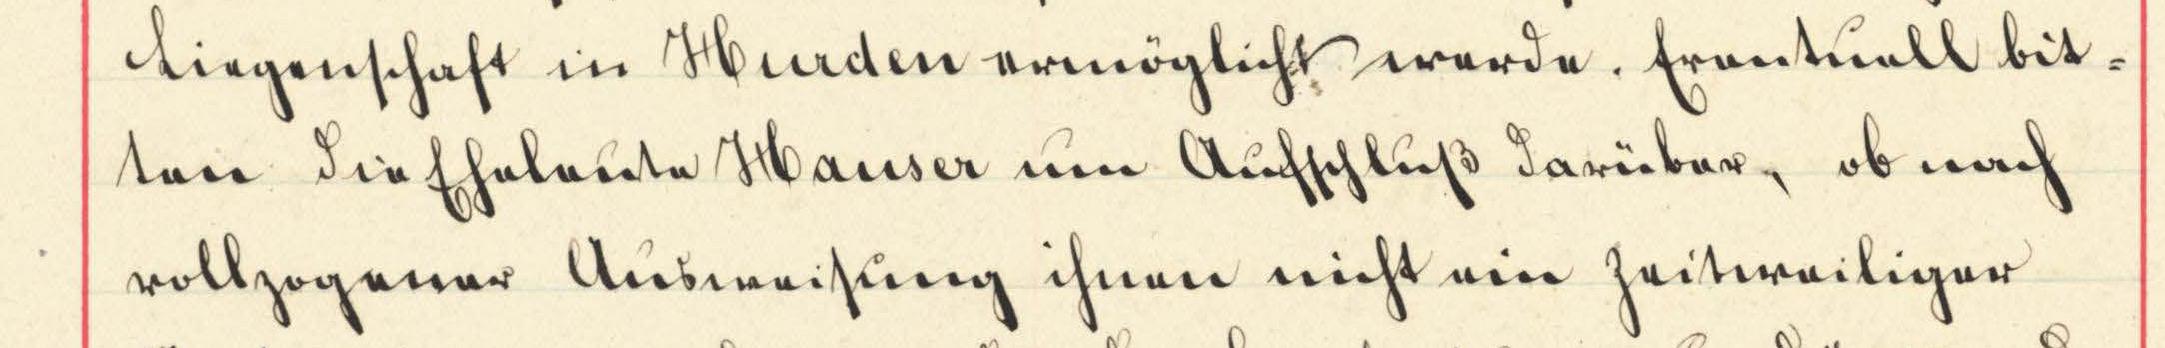 Liegenschaft in Hurden ermöglicht werde. Eventuell bit=
ten die Eheleute Hauser um Aufschluß darüber, ob nach
vollzogener Ausweisung ihnen nicht ein zeitweiliger